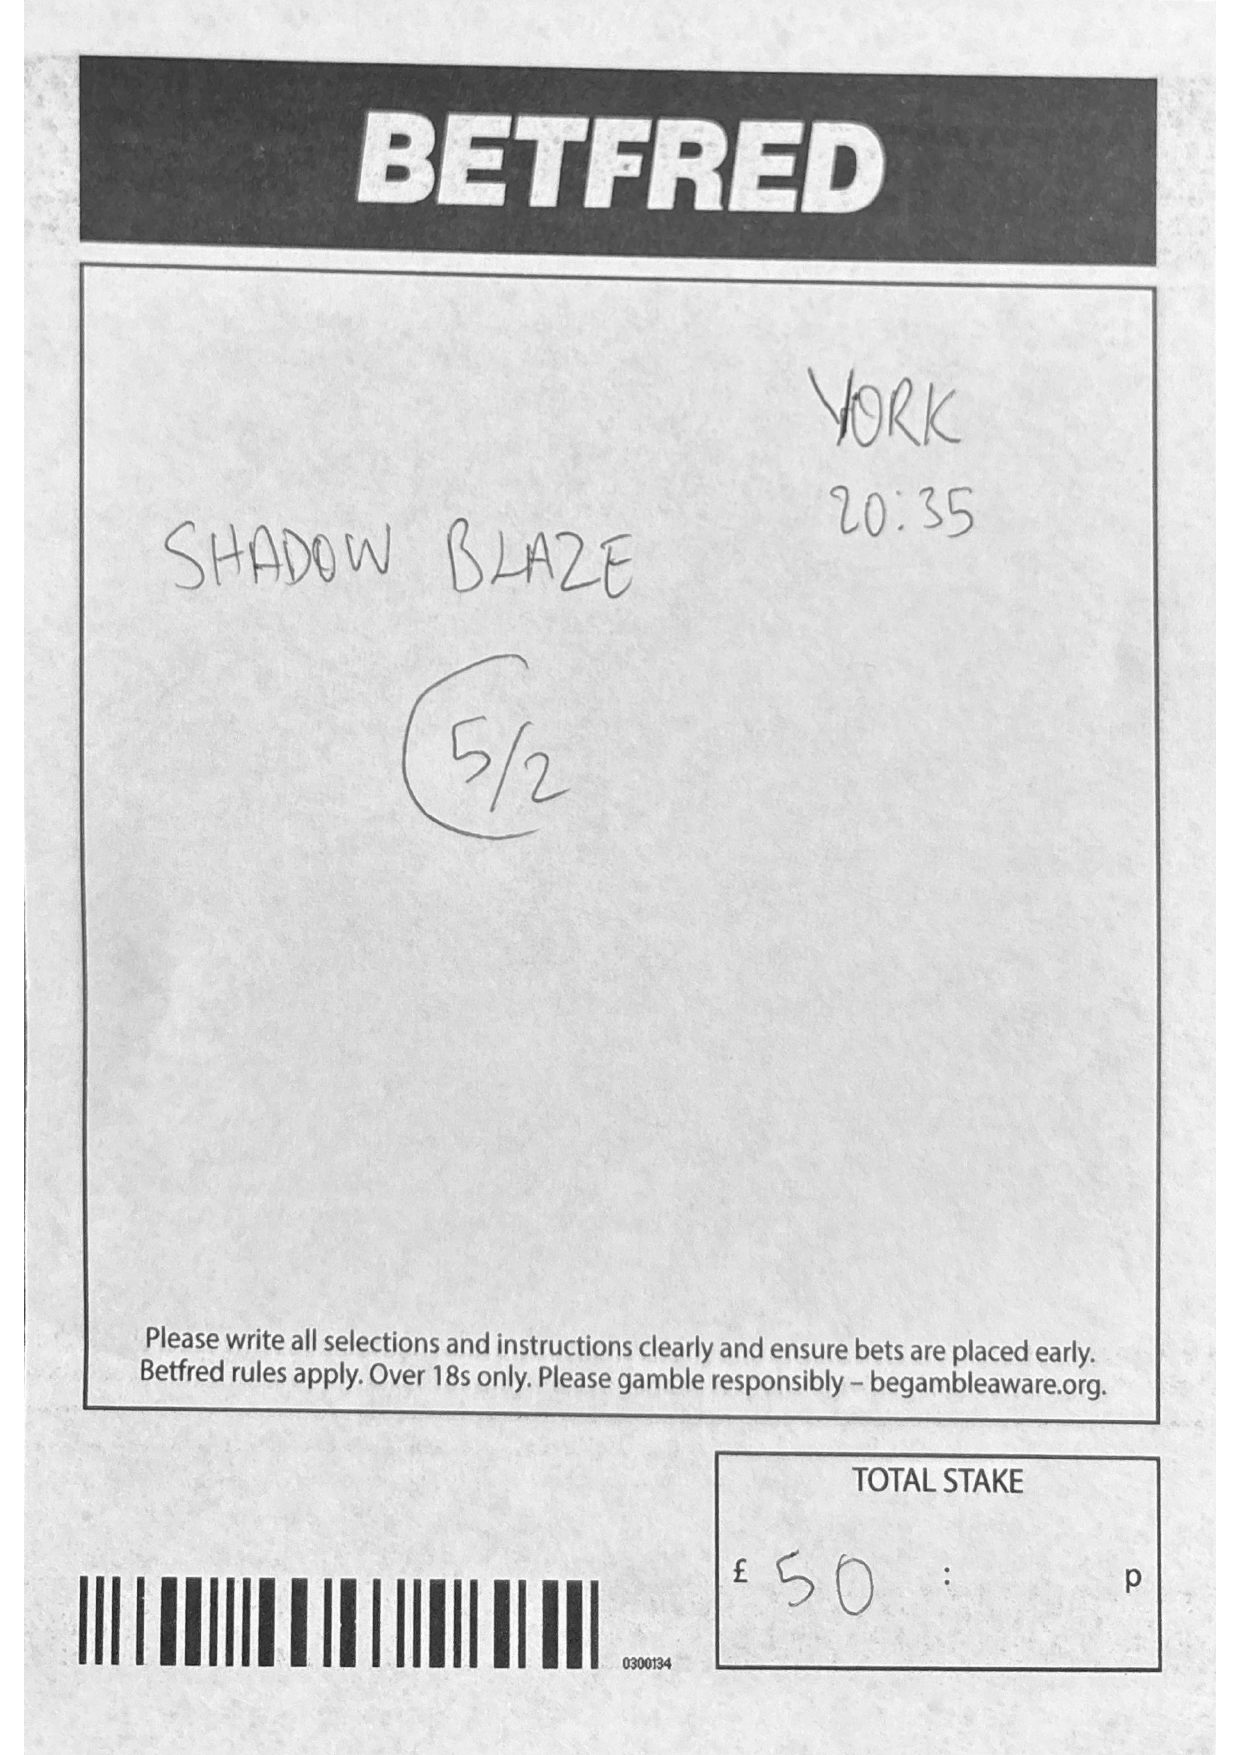 BETFRED
YORK
20:35
SHADOW BLAZE
5/2
Please write all selections and instructions clearly and ensure bets are placed early.
Betfred rules apply. Over 18s only. Please gamble responsibly – begambleaware.org.
TOTAL STAKE
£ 50 : p
0300134